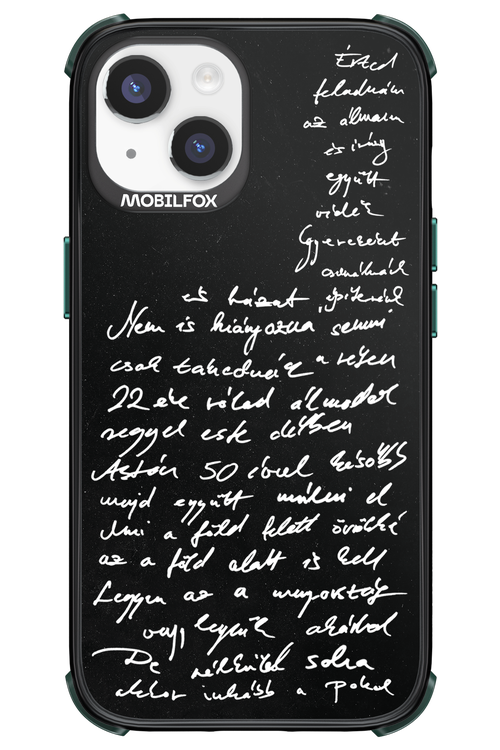 MOBILFOX
Érted
feladnám
az álmaim
és így
együtt
Gyereket
csinálnánk
és házat építenénk
Nem is hiányozna semmi
csak
22 éve rólad álmodok
reggel este délben
Aztán 50 évvel később
majd együtt múlni el
a föld felett örökké
az a föld alatt is kell
Legyen az a mennyország
vagy legyünk akárhol
De nélküled soha
akkor inkább a pokol